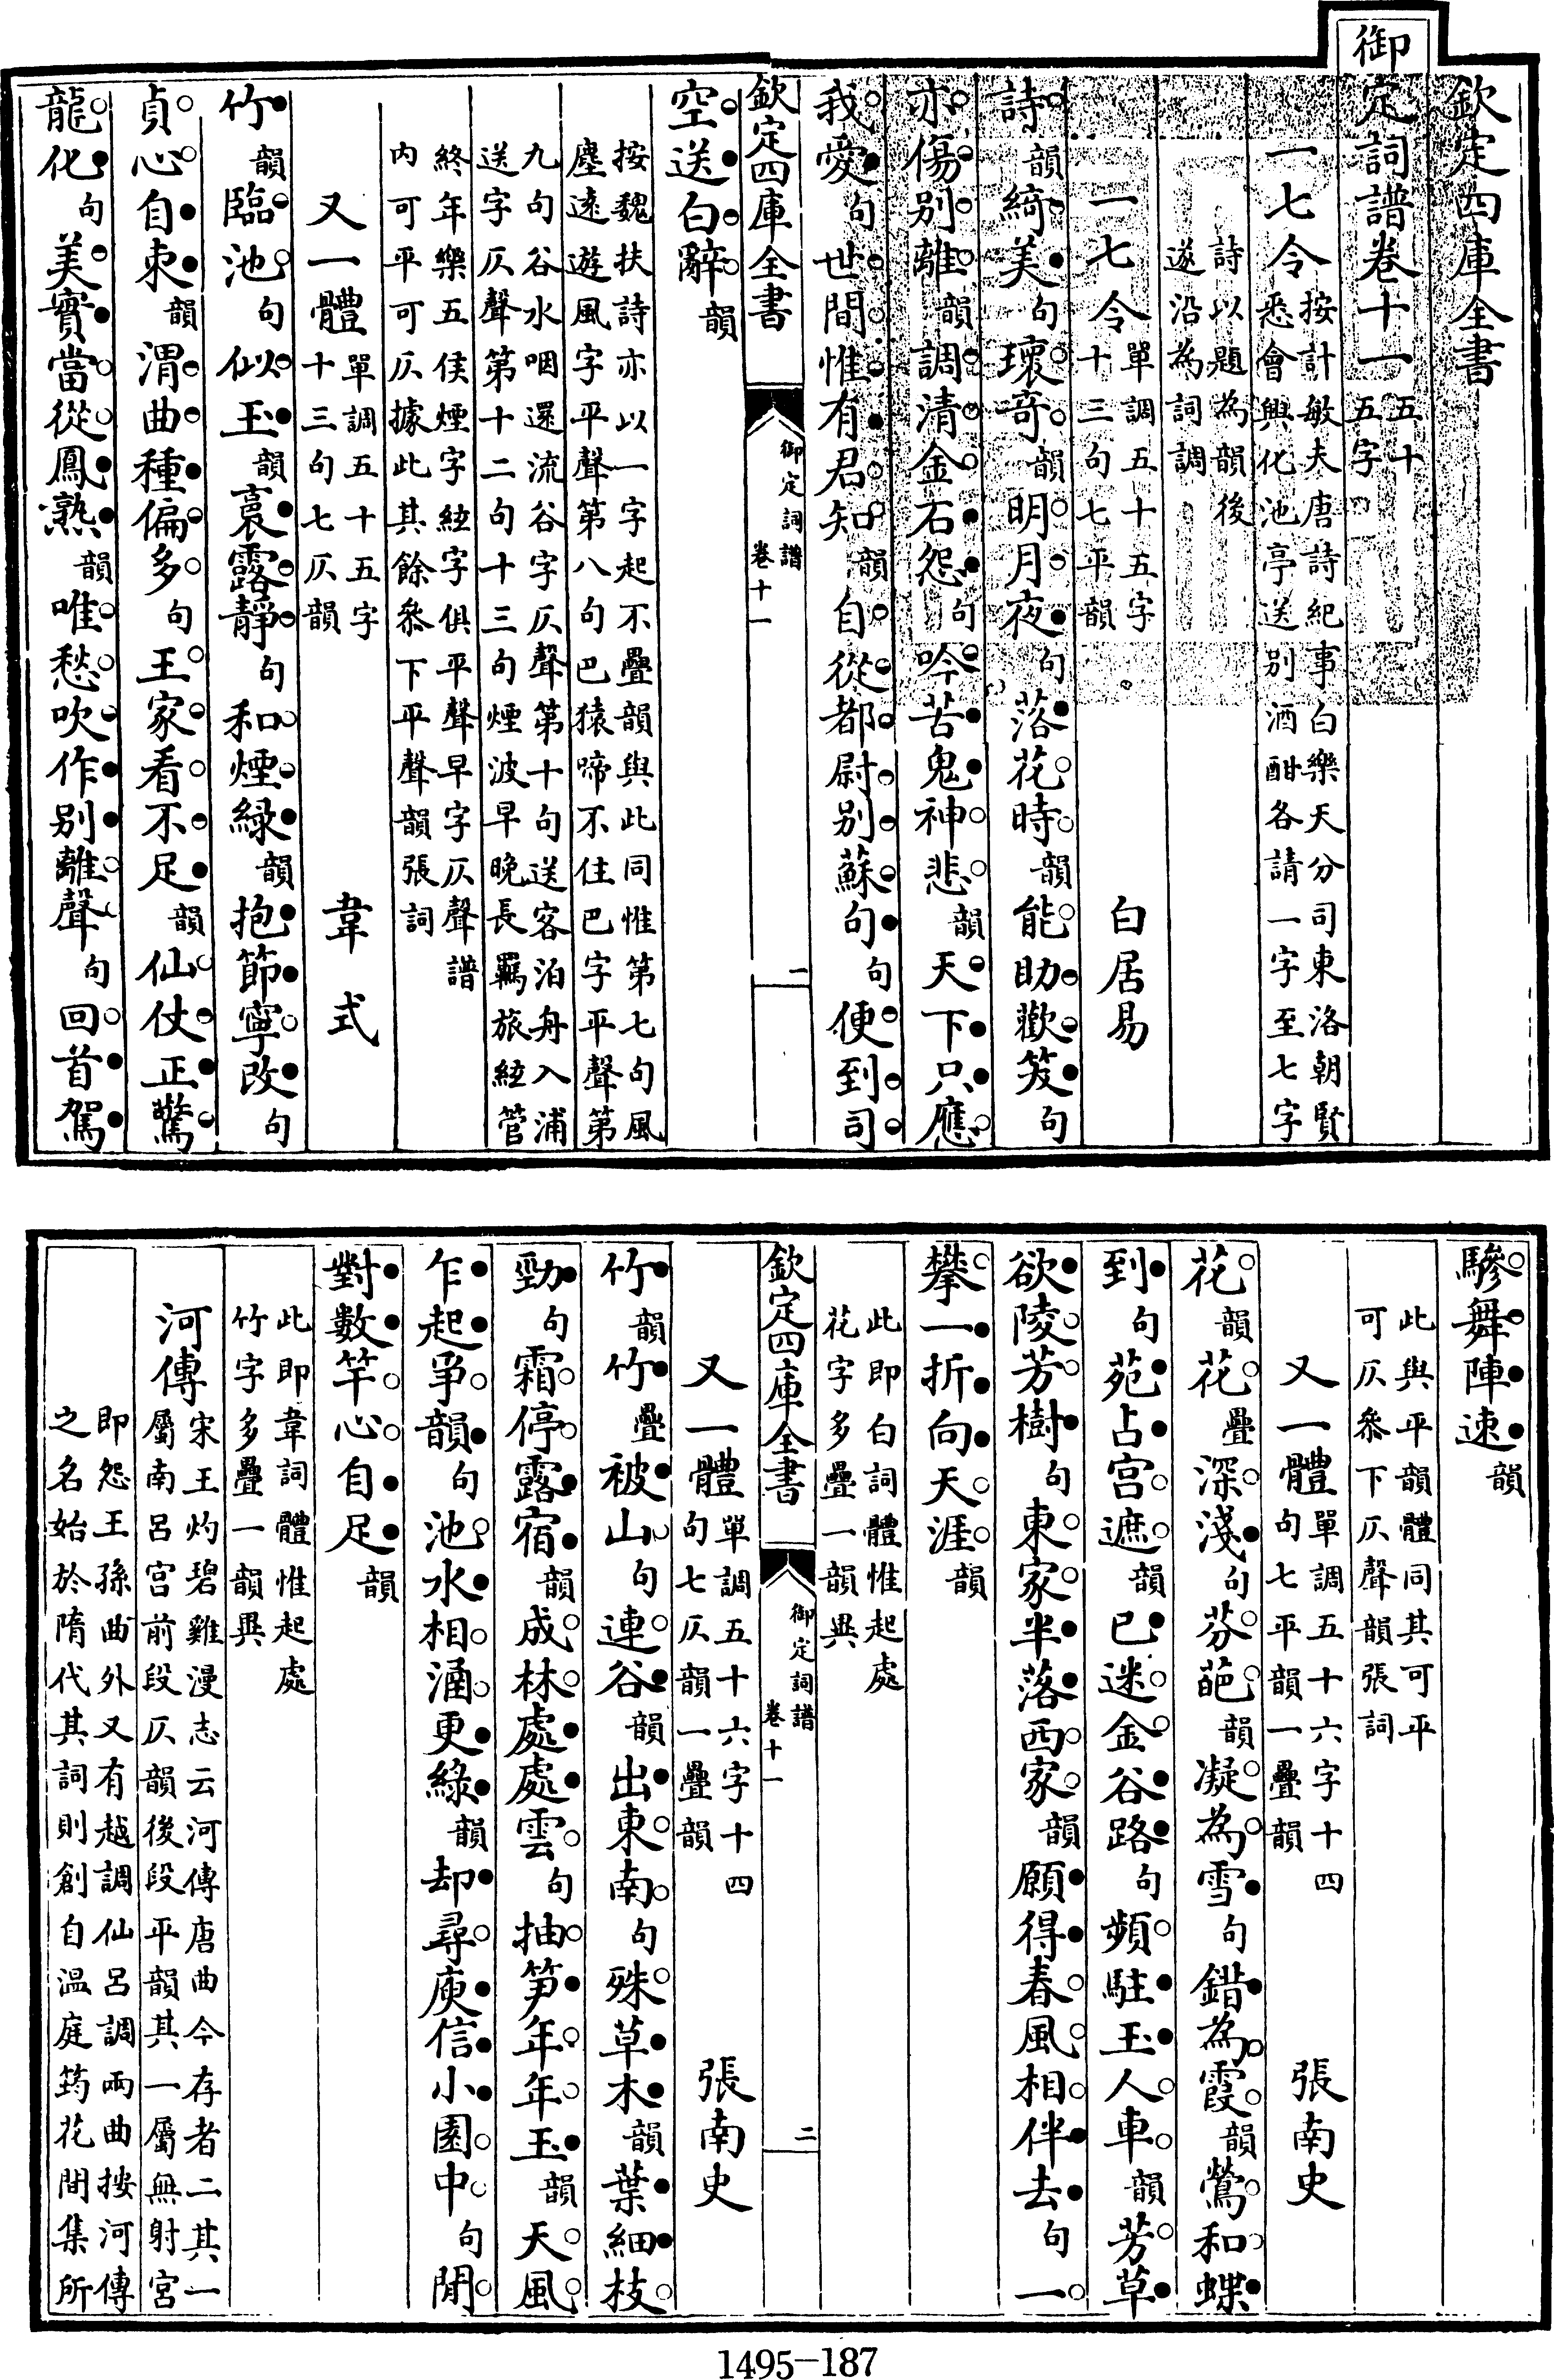 欽定四庫全書
御定詞譜卷十一 五十五字
一七令 按計敏夫唐詩紀事白樂天分司東洛朝賢
悉會興化池亭送別酒酣各請一字至七字
詩以題為韻後
遂沿為詞調
一七令 單調五十五字
十三句七平韻 白居易
詩韻綺美句瓌奇韻明月夜句落花時韻能助歡笑句
亦傷別離韻調清金石怨句吟苦鬼神悲韻天下只應
我愛句世間惟有君知韻自從都尉別蘇句句便到司
欽定四庫全書 御定詞譜 卷十一 二
空送白辭韻
按魏扶詩亦以一字起不疊韻與此同惟第七句風
塵遠遊風字平聲第八句巴猿啼不住巴字平聲第
九句谷水咽還流谷字仄聲第十句送客泊舟入浦
送字仄聲第十二句十三句煙波早晚長羈旅絃管
終年樂五侯煙字絃字俱平聲早字仄聲譜
內可平可仄據此其餘叅下平聲韻張詞
又一體 單調五十五字
十三句七仄韻 韋式
竹韻臨池句似玉韻裛露靜句和煙綠韻抱節寧改句
貞心自束韻渭曲種偏多句王家看不足韻仙仗正驚
龍化句美實當從鳳熟韻唯愁吹作別離聲句回首駕
驂舞陣速韻
此與平韻體同其可平
可仄叅下仄聲韻張詞
又一體 單調五十六字十四
句七平韻一疊韻 張南史
花韻花疊深淺句芬葩韻凝為雪句錯為霞韻鶯和蝶
到句苑占宫遮韻已迷金谷路句頻駐玉人車韻芳草
欲陵芳樹句東家半落西家韻願得春風相伴去句一
攀一折向天涯韻
此即白詞體惟起處
花字多疊一韻異
欽定四庫全書 御定詞譜 卷十一 二
又一體 單調五十六字十四
句七仄韻一疊韻 張南史
竹韻竹疊被山句連谷韻出東南句殊草木韻葉細枝
勁句霜停露宿韻成林處處雲句抽笋年年玉韻天風
乍起爭韻句池水相涵更綠韻却尋庾信小園中句閒
對數竿心自足韻
此即韋詞體惟起處
竹字多疊一韻異
河傳 宋王灼碧雞漫志云河傳唐曲今存者二其一
屬南呂宮前段仄韻後段平韻其一屬無射宮
即怨王孫曲外又有越調仙呂調兩曲按河傳
之名始於隋代其詞則創自温庭筠花間集所
1495-187